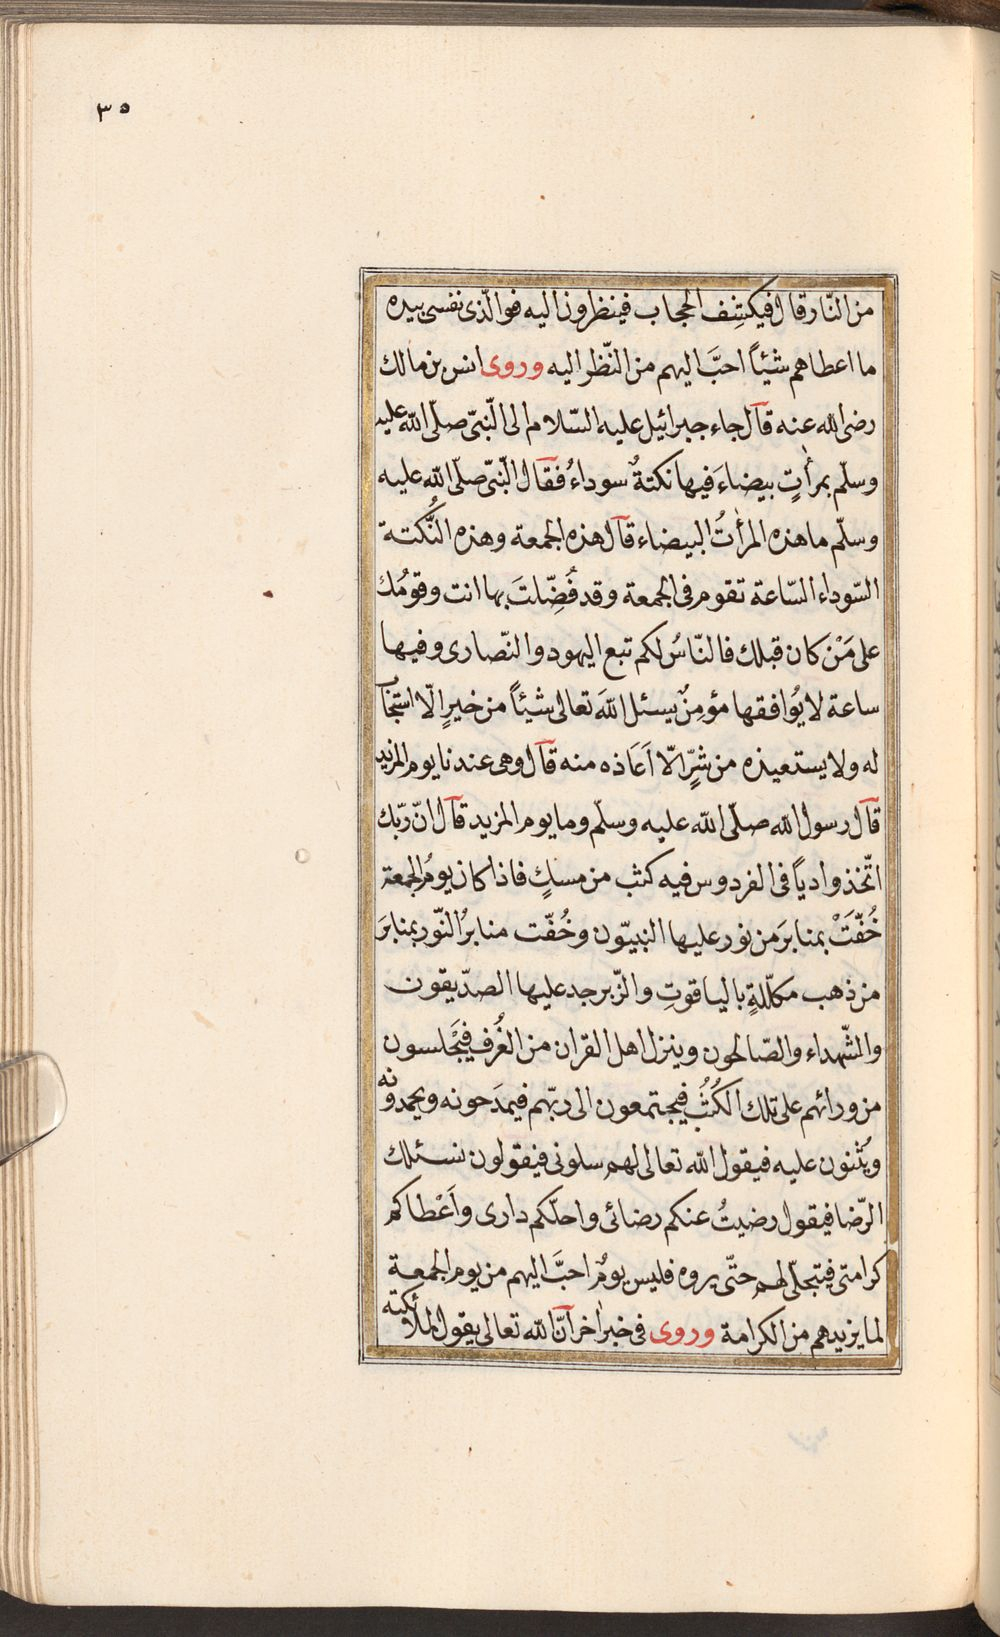 ٣٥
من النّار قال فيكشِف الحجاب فينظرون اليه فوالّذى نفسى بيده
ما اعطاهم شيئاً احبَّ اليهم من النّظر اليه وروى انس بن مالك
رضى الله عنه قال جاء جبرائيل عليه السّلام الى النّبىّ صلّى الله عليه
وسلّم بمرأتٍ بيضاءَ فيها نكتةٌ سوداءُ فقال النّبىّ صلّى الله عليه
وسلّم ما هذه المرأتُ البيضاء قال هذه الجمعة وهذه النُّكتة
السّوداء السّاعة تقوم فى الجمعة وقد فُضِّلتَ بها انت وقومُك
على مَنْ كان قبلك فالنّاسُ لكم تبع اليهود والنّصارى وفيها
ساعة لا يُوافقها مؤمِنٌ يسئل اللهَ تعالى شيئاً من خيرٍ الّا استجاب
له ولا يستعيذه من شرٍّ الّا اَعَاذه منه قال وهى عندنا يوم المزيد
قال رسول الله صلّى الله عليه وسلّم وما يوم المزيد قال انّ ربّك
اتّخذ وادياً فى الفردوس فيه كثب من مسكٍ فاذا كان يومُ الجمعة
حُفّتَْ بمنابرَ من نور عليها النبيّون وحُفّت منابرُ النّور بمنابرَ
من ذهب مكلّلةٍ باليا قوتِ والزّبرجد عليها الصدّيقون
والشّهداء والصّالحون وينزل اهل القران من الغُرف فيَجْلسون
من ورائهم على تلك الكُثُبِ فيجتمعون الى ربّهم فيمدَحونه ويحمدونه
ويُثنون عليه فيقول الله تعالى لهم سلونى فيقولون نسئلك
الرّضا فيقول رضيتُ عنكم رضائى واحلّكم دارى واَعْطاكم
كرامتى فيتجلّى لهم حتّى يروه فليس يومٌ احبَّ اليهم من يوم الجمعة
لما يزيدهم من الكرامة وروى فى خبر اخر انّ الله تعالى يقول لملائكته